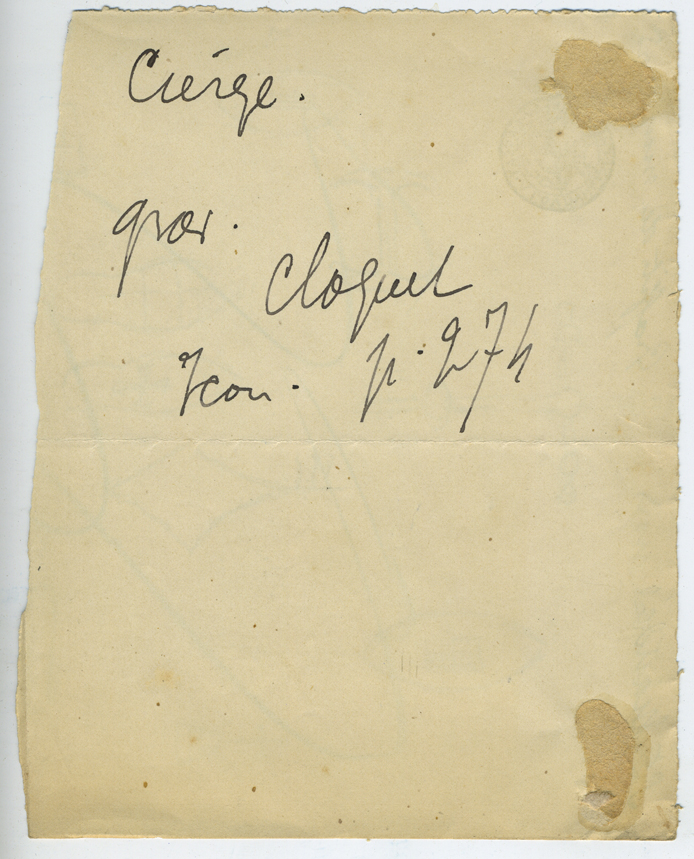 Cierge.
grav.
Cloquet
Icon. p. 274